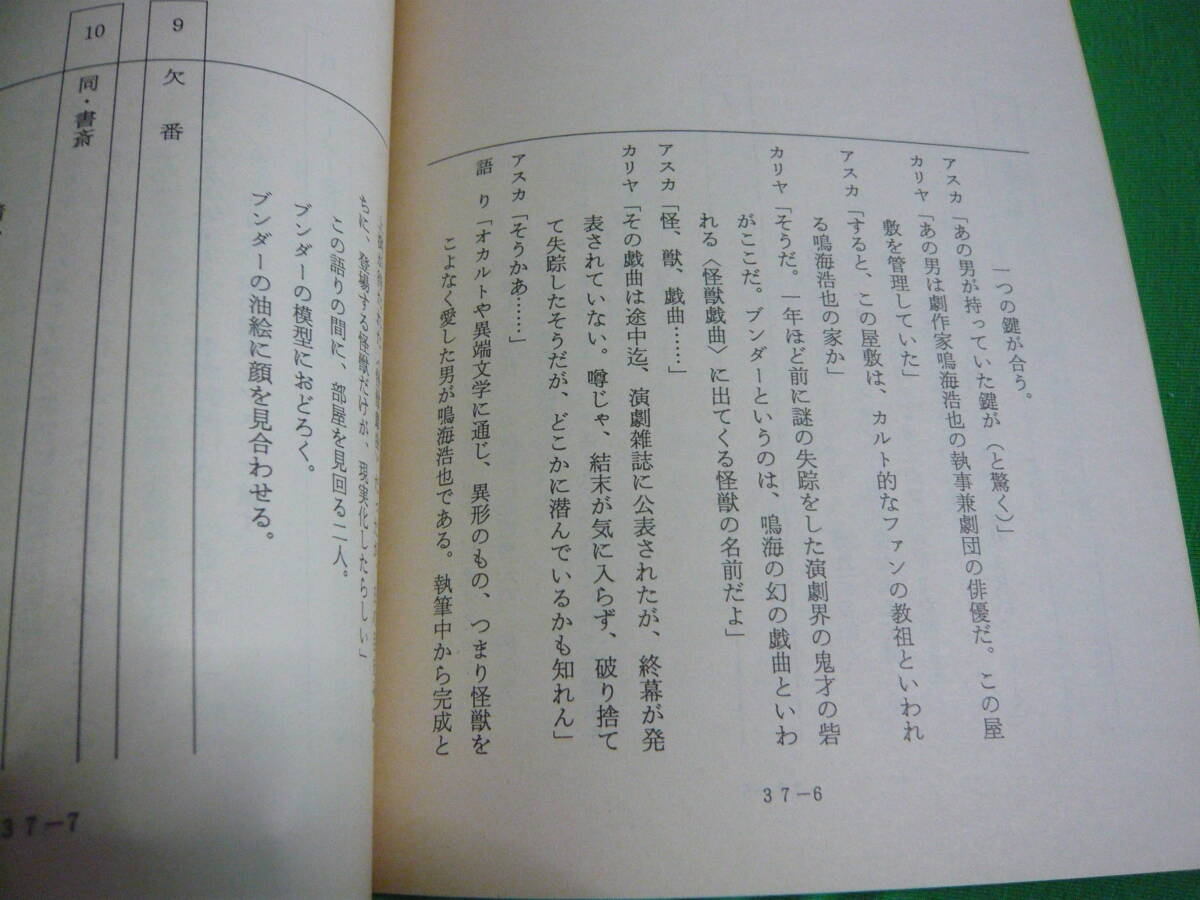 一つの鍵が合う。
アスカ「あの男が持っていた鍵が（と驚く）」
カリヤ「あの男は劇作家鳴海浩也の執事兼劇団の俳優だ。この屋
敷を管理していた」
アスカ「すると、この屋敷は、カルト的なファンの教祖といわれ
る鳴海浩也の家か」
カリヤ「そうだ。一年ほど前に謎の失踪をした演劇界の鬼才の砦
がここだ。ブンダーというのは、鳴海の幻の戯曲といわ
れる〈怪獣戯曲〉に出てくる怪獣の名前だよ」
アスカ「怪、獣、戯曲……」
カリヤ「その戯曲は途中迄、演劇雑誌に公表されたが、終幕が発
表されていない。噂じゃ、結末が気に入らず、破り捨て
て失踪したそうだが、どこかに潜んでいるかも知れん」
アスカ「そうかあ……」
語り「オカルトや異端文学に通じ、異形のもの、つまり怪獣を
こよなく愛した男が鳴海浩也である。執筆中から完成と
37－6
ちに、登場する怪獣だけが、現実化したらしい」
この語りの間に、部屋を見回る二人。
ブンダーの模型におどろく。
ブンダーの油絵に顔を見合わせる。
9 欠番
10 同・書斎
37－7